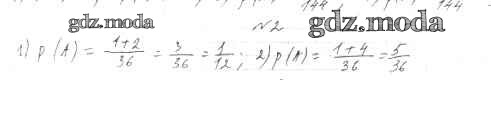 144 144
gdz.moda №2 gdz.moda
1) p(A) = 1+2/36 = 3/36 = 1/12; 2) p(A) = 1+4/36 = 5/36